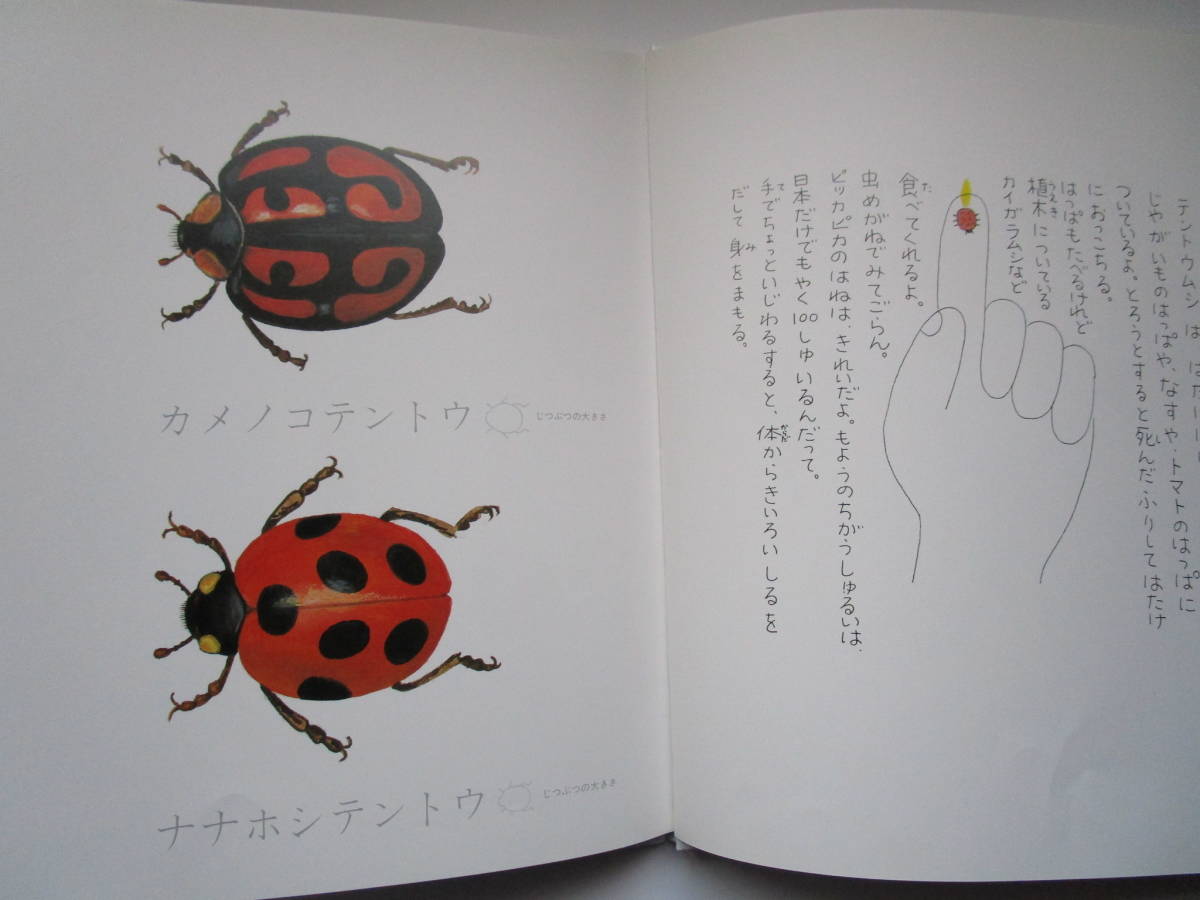 カメノコテントウ
じつぶつの大きさ
ナナホシテントウ
じつぶつの大きさ
テントウムシ は
じゃがいものはっぱや、なすや、トマトのはっぱに
ついているよ。とろうとすると死んだふりしてはたけ
におっこちる。
はっぱもたべるけれど
植木についている
カイガラムシなど
食べてくれるよ。
虫めがねでみてごらん。
ピッカピカのはねは、きれいだよ。もようのちがうしゅるいは、
日本だけでもやく100しゅいるんだって。
手でちょっといじわるすると、体からきいろいしるを
だして身をまもる。